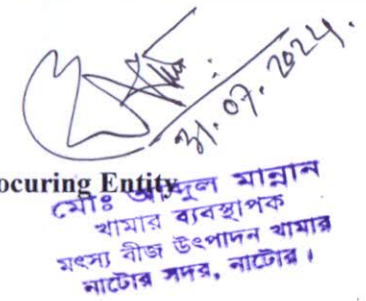 ৩১.০৭.২০২৪.
ocuring Entity
মোঃ আব্দুল মান্নান
খামার ব্যবস্থাপক
মৎস্য বীজ উৎপাদন খামার
নাটোর সদর, নাটোর।